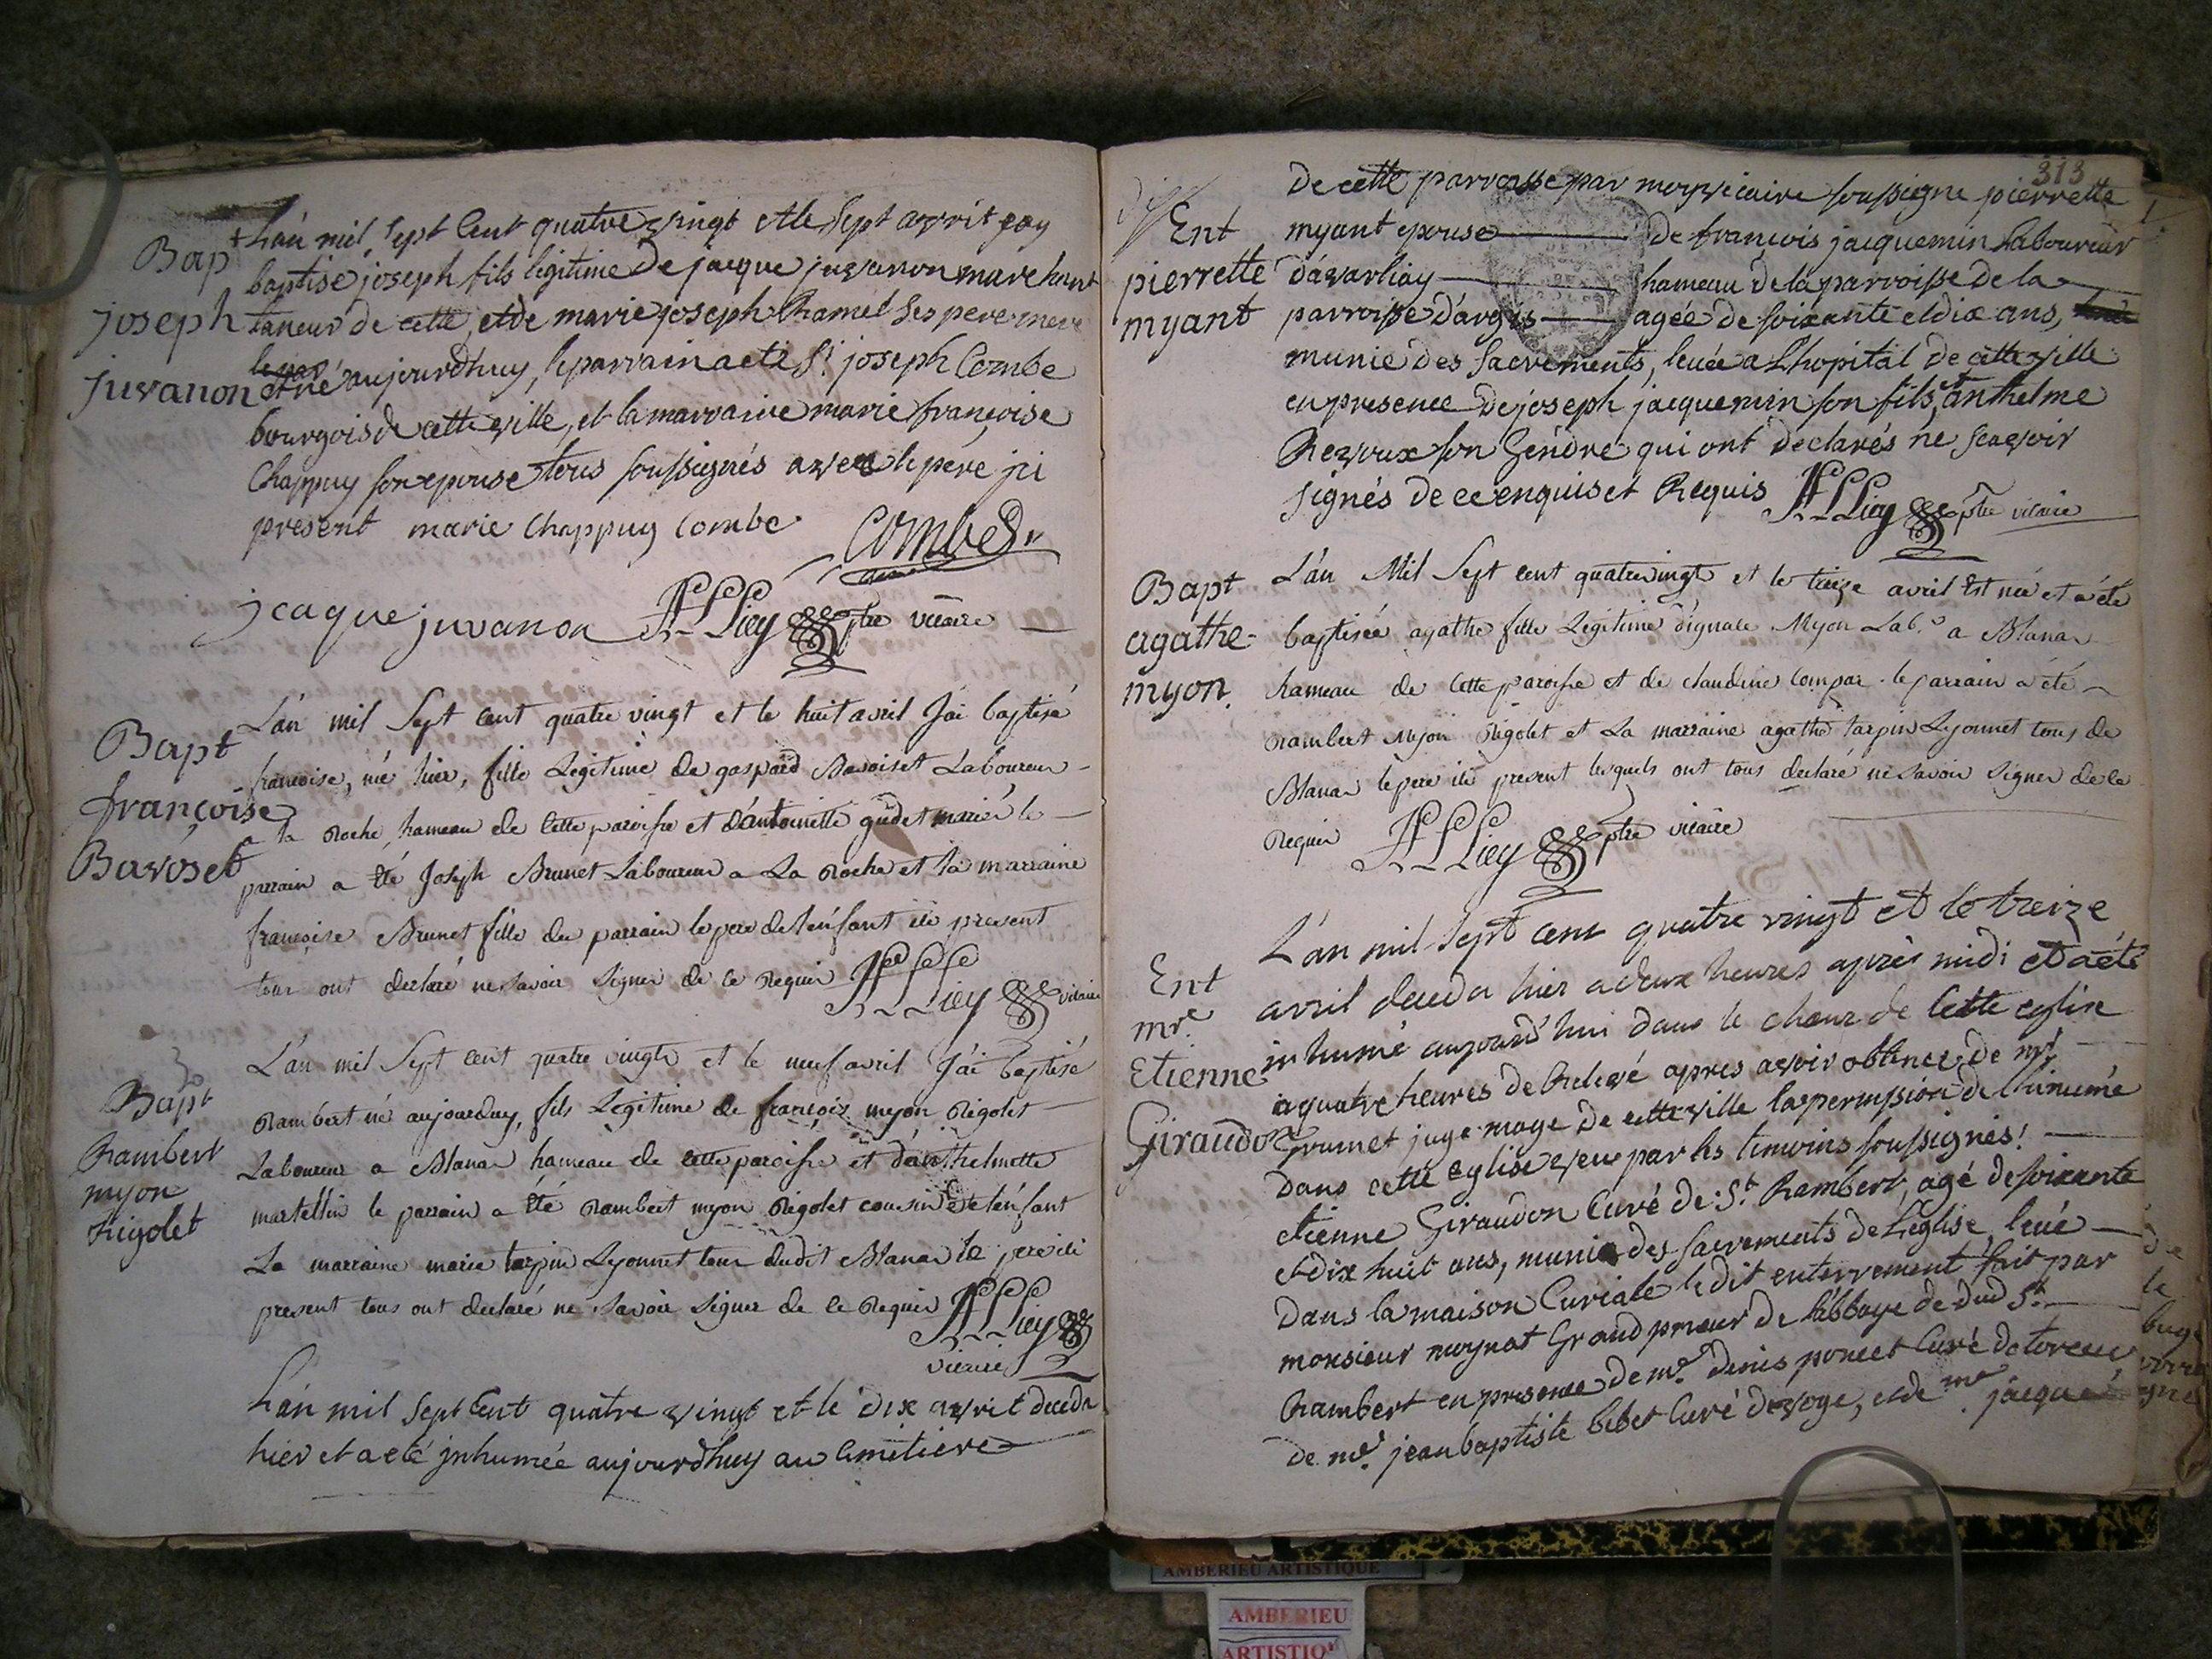 Bapt
joseph
juvanon
L'an mil sept Cent quatre vingt et le sept avvril jay
baptisé joseph fils legitime de jacque juvanon marchant
taneur de cette, et de marie joseph Chamel ses pere mere
et né aujourdhuy, le parrain a eté Sr joseph Combe
bourgois de cette ville, et la marraine marie françoise
Chappuy son epouse tous soussignés avec le peré ici
present marie Chappuy Combe Combe
jcaque juvanon ptre vicaire
Bapt
françoise
Bavoset
L'an mil Sept cent quatre vingt et le huit avril J'ai baptisé
francoise, né hier, fille Legitime de gaspard Bavoiset Laboureur
a la Roche, hameau de cette paroisse et d'antoinette gudet mariés le
parrain a été Joseph Brunet Laboureur a La Roche et la marraine
francoise Brunet fille du parrain le pere de l'enfant ici present
tous ont declaré ne savoir signer de ce Requis vicaire
Bapt
Rambert
myon
Rigolet
L'an mil Sept cent quatre vingts et le neuf avril J'ai baptisé
Rambert né aujourduy, fils Legitime de françois myon Rigolet
Laboureur a Blanas hameau de cette paroisse et d'anthelmette
martellin le parrain a été Rambert myon Rigolet cousin de l'enfant
La marraine marie tarpin Lyonnet tous dudit Blanas le pere ici
present tous ont declaré ne savoir signer de ce Requis
vicaire
L'an mil sept Cent quatre vingt et le dix avvril deceda
hier et a eté inhumée aujourdhuy au Cimetiere
313
Ent
pierrette
myant
de cette parroisse par moy vicaire soussigne pierrette
myant epouse de françois jacquemin Laboureur
d'avarliay hameau de la parroisse de la
parroisse d'argis agée de soixante et dix ans,
munie des Sacrements, levée a L'hopital de cette ville
en presence de joseph jacquemin son fils, et anthelme
Revoux son Gendre qui ont declarés ne scavoir
signés de ce enquis et Requis ptre vicaire
Bapt
agathe
myon.
L'an Mil Sept cent quatrevingts et le treize avril Est née et a été
baptisée agathe fille Legitime d'ignace Myon Labr a Blanas
hameau de Cette paroisse et de claudine Compar. le parrain a été
Rambert Myon Rigolet et La marraine agathe tarpin Lyonnet tous de
Blanas le pere ici present lesquels ont tous declaré ne savoir signer de ce
Requis ptre vicaire
Ent
mre
Etienne
Giraudon
L'an mil sept cent quatre vingt et le treize
avril deceda hier a deux heures après midi et a été
inhumé aujourd'hui dans le chœur de Cette eglise
a quatre heures de Relevé apres avoir obtenu de mr
Grumet juge mage de cette ville la permission de l'inhumé
dans cette eglise veu par les temoins soussignés!
etienne Giraudon Curé de St Rambert, agé de soixante
et dix huit ans, muni des sacrements de L'eglise, levé
dans la maison Curiale le dit enterrement fait par
monsieur moynat Grand prieur de L'abbaye de dud St
Rambert en presence de mre denis poncet Curé de torcieu
de mre jean baptiste bebet Curé d'evoge, et de mre jacque
AMBERIEU ARTISTIQUE
AMBERIEU